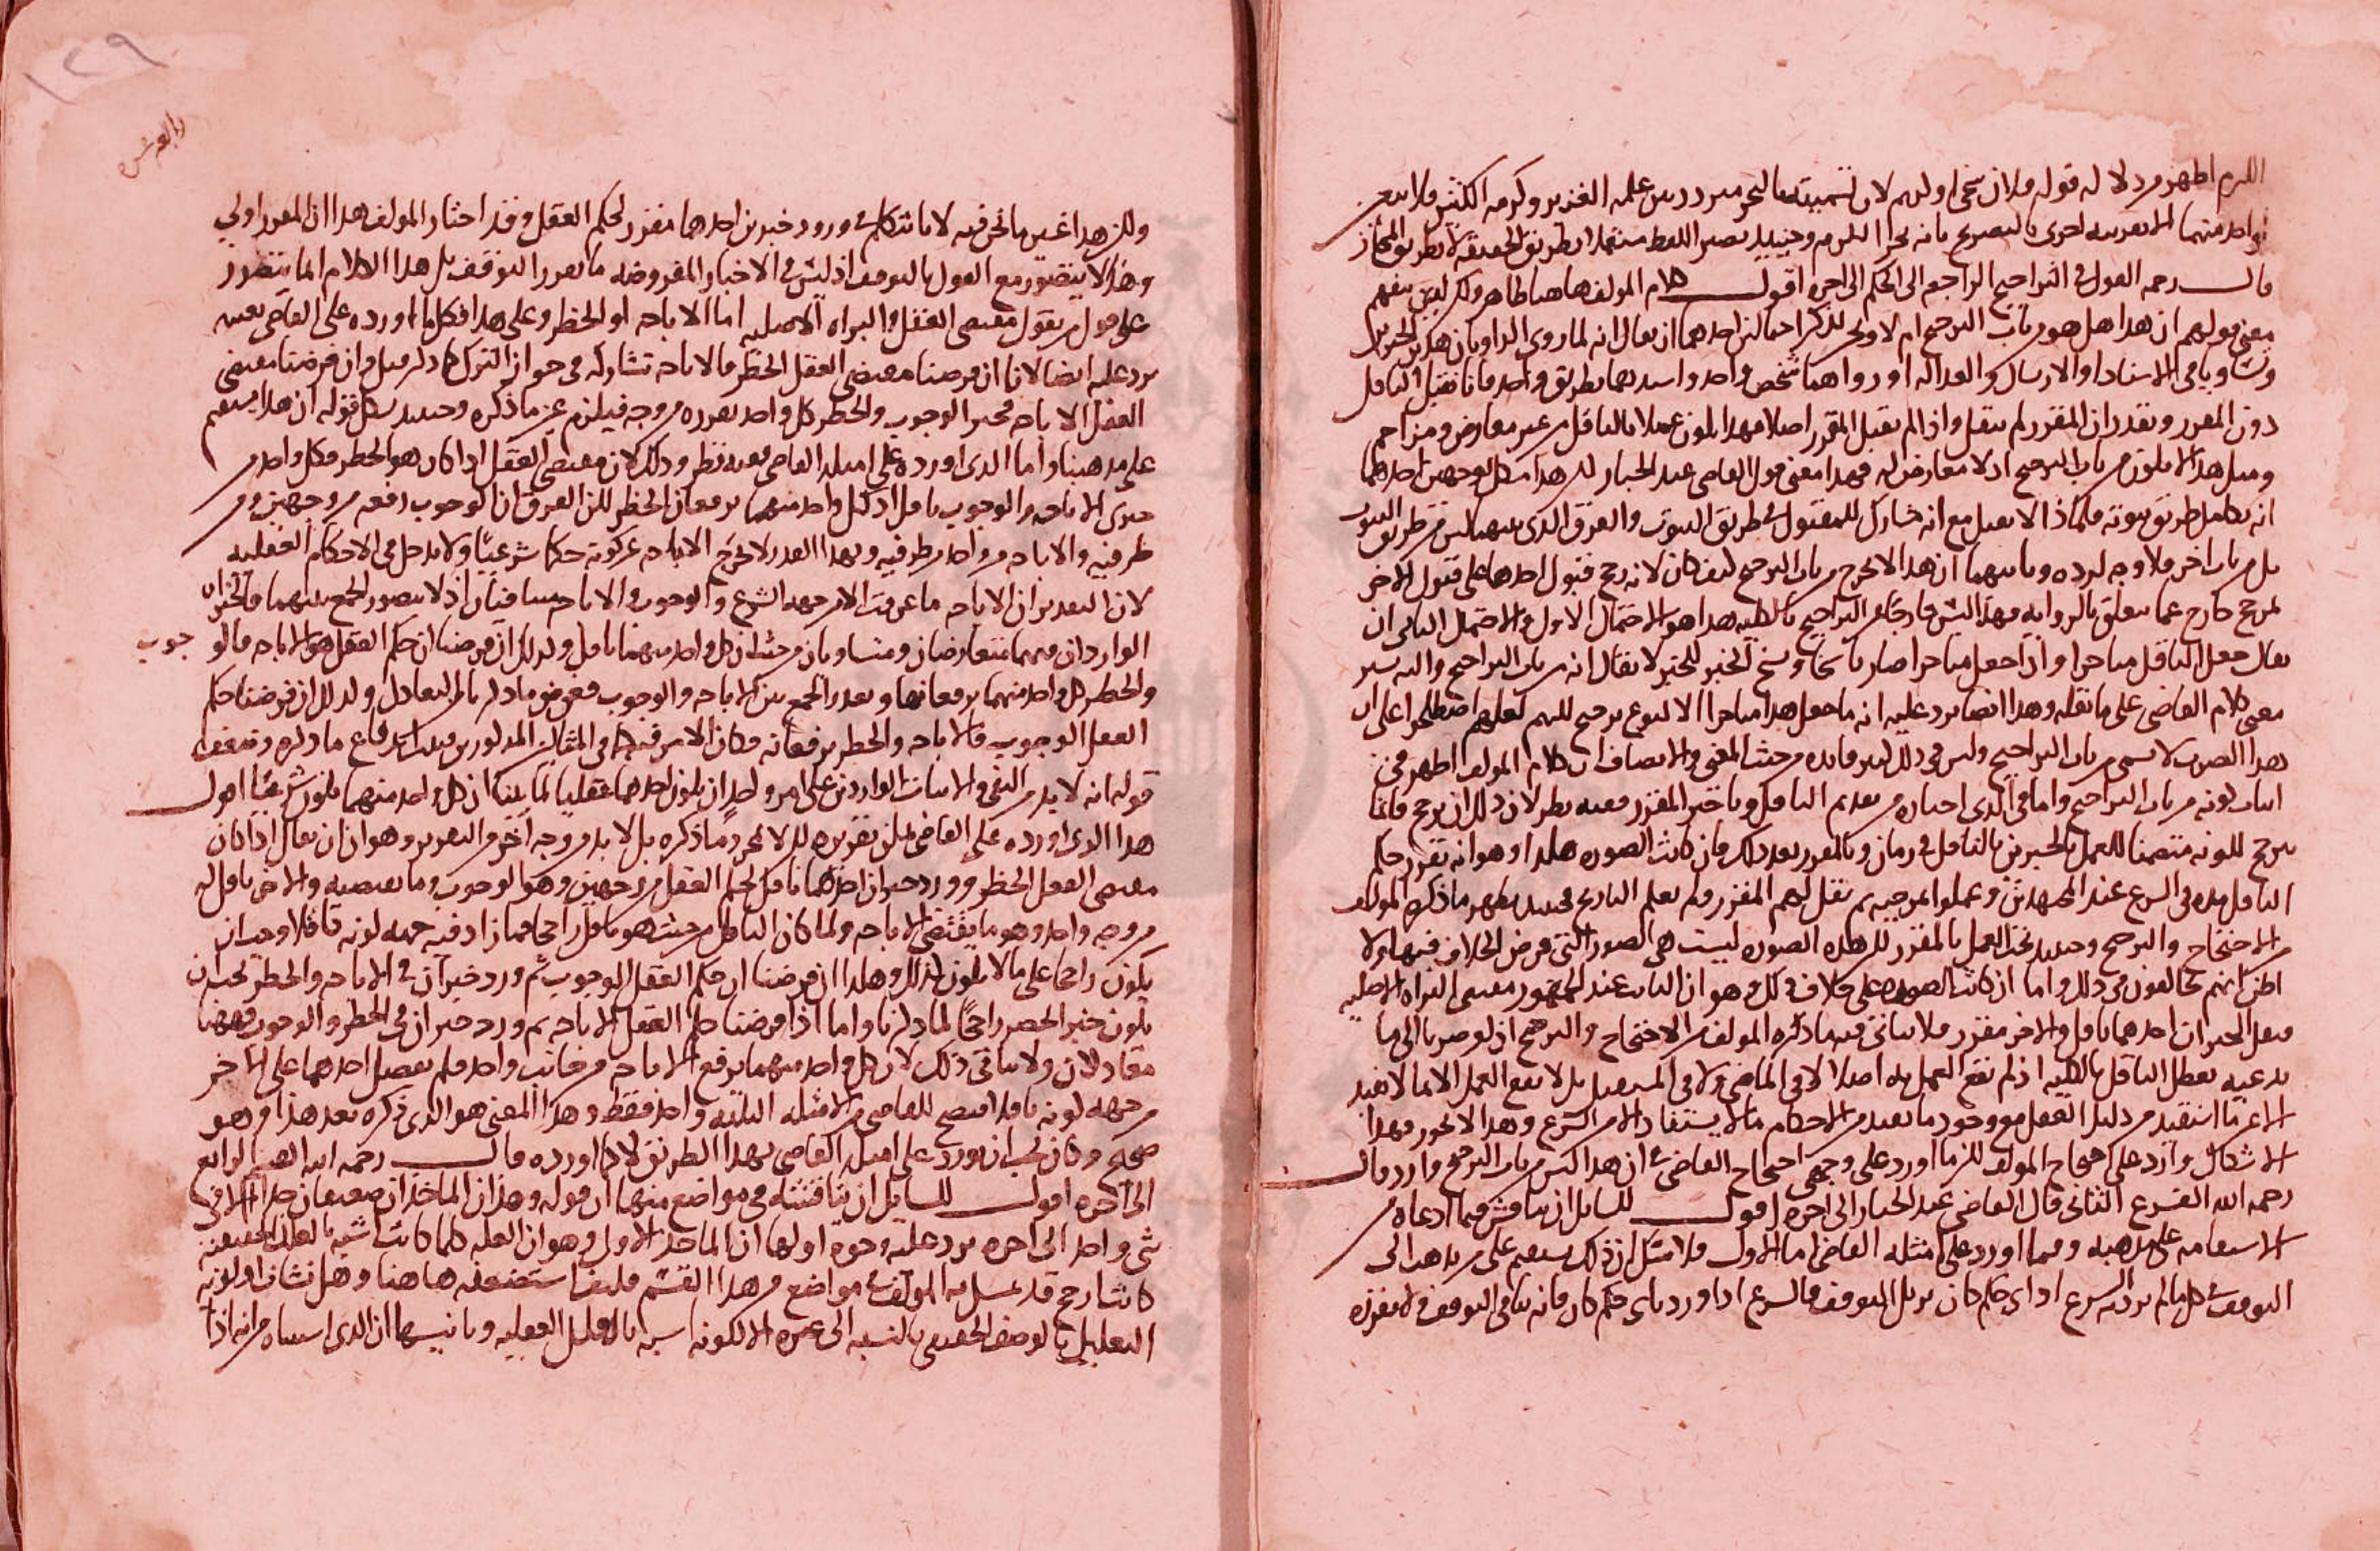 الكرم اظهر من دلالة قوله فلان سخي او كريم لان تسميته بالبحر متردد بين علمه الغزير وكرمه الكثير فلا يتعين
واحد منهما الا بقرينة اخرى بالتصريح بانه بحر الكرم وحينئذ يصير اللفظ مستعملا بطريق الحقيقة لا بطريق المجاز
قال رحمه القول في التراجيح الراجعة الى الحكم الى اخره اقول كلام المولف هاهنا ظاهر ولكن لمن يفهم
معنى قولهم ان هذا هل هو من باب الترجيح ام لا ونحن نذكر احتمالين احدهما ان يقال انه لما روى الراويان هذين الخبرين
وتساويا في الاسناد او الارسال والعدالة او رواهما شخص واحد واسندهما بطريق واحد فانا نقبل الناقل
دون المقرر ونقدر ان المقرر لم ينقل واذا لم نقبل المقرر اصلا فهذا يكون عملا بالناقل من غير معارض ومزاحم
ومثل هذا لا يكون من باب الترجيح اذ لا معارض له فهذا معنى قول القاضي عبد الجبار لكن هذا مشكل لوجهين احدهما
انه تكامل طريق ثبوته فلماذا لا يقبل مع انه شارك للمقبول في طريق الثبوت والفرق الذي بينهما ليس من طريق الثبوت
بل من باب اخر فلا وجه لرده وثانيهما ان هذا لا يخرج من باب الترجيح كيف كان لانه رجح قبول احدهما على قبول الاخر
لمرجح خارج عما يتعلق بالرواية فهذا ليس خارجا من التراجيح بالكلية هذا هو الاحتمال الاول والاحتمال الثاني ان
يقال جعل الناقل متاخرا واذا جعل متاخرا صار ناسخا ونسخ الخبر للخبر لا يقال انه من باب التراجيح واليه يشير
معنى كلام القاضي على ما نقله وهذا ايضا يرد عليه انه ما جعل هذا متاخرا الا لنوع ترجيح اللهم لعلهم اصطلحوا على ان
هذا الضرب لا يسمى من باب التراجيح وليس في ذلك كثير فائدة من حيث المعنى والانصاف ان كلام المولف اظهر في
اثبات كونه من باب التراجيح واما في الذي اختاره من تقديم الناقل وتاخير المقرر ففيه نظر لان ذلك ان يرجح فانما
يترجح لكونه متضمنا للعمل بالخبرين بالناقل في زمان وبالمقرر بعد ذلك فان كانت الصورة هكذا وهو انه تقرر حكم
الناقل مدة في الشرع عند المجتهدين وعملوا بموجبه ثم نقل لهم المقرر ولم يعلم التاريخ فحينئذ يظهر ما ذكره المولف
من الاحتجاج والترجيح وحينئذ نحن العمل بالمقرر لكن هذه الصورة ليست هي الصورة التي فرض الخلاف فيها ولا
اظن انهم يخالفون في ذلك واما ان كانت الصورة على خلاف ذلك وهو ان الثابت عند الجمهور مقتضى البراءة الاصلية
فنقل الخبران احدهما ناقل والاخر مقرر فلا يتاتى فيه ما ذكره المولف من الاحتجاج والترجيح اذ لو صرنا الى ما
يدعيه تعطل الناقل بالكلية اذ لم يقع العمل به اصلا لا في الماضي ولا في المستقبل بل لا يقع العمل الا بما لا يفيد
الا عما استفيد من دليل العقل مع وجود ما يفيد من الاحكام ما لا يستفاد الا من الشرع وهذا لا يجوز فهذا
الاشكال وارد على احتجاج المولف لكن ما اورد على وجهي احتجاج القاضي في ان هذا ليس من باب الترجيح وارد قال
رحمه الله الفرع الثاني قال القاضي عبد الجبار الى اخره اقول للسائل ان يناقش فيما ادعاه من
الاستقامة على مذهبه وفيما اورد على امثلة القاضي اما الاول فلا شك ان ذلك يستقيم على من يذهب الى
التوقف في كل ما لم يرد به الشرع اذ اي حكم كان يزيل التوقف فالشرع اذا ورد باي حكم كان فانه ينافي التوقف ولا يقرره
ولكن هذا غير ما نحن فيه لانا نتكلم في ورود خبرين احدهما مقرر لحكم العقل وقد اختار المولف هذا ان المقرر اولى
وهذا لا يتصور مع القول بالتوقف اذ ليس في الاخبار المفروضة ما يقرر التوقف بل هذا الكلام انما يتصور
على قول من يقول مقتضى العقل والبراءة الاصلية اما الاباحة او الحظر وعلى هذا فكل ما اورده على القاضي بعينه
يرد عليه ايضا لانا ان فرضنا مقتضى العقل الحظر فالاباحة تشاركه في جواز الترك كما ذكر قبل وان فرضنا مقتضى
العقل الاباحة فخبرا الوجوب والحظر كل واحد يقرره من وجه فيلزم عين ما ذكره وحينئذ يبطل قوله ان هذا يستقيم
على مذهبنا واما الذي اورده على امثلة القاضي ففيه نظر وذلك لان مقتضى العقل اذا كان هو الحظر فكل واحد من
خبري الاباحة والوجوب ناقل اذ كل واحد منهما يرفعان الحظر لكن الفرق ان الوجوب رفعه من وجهين ومن
طرفيه والاباحة من واحد من طرفيه وبهذا القدر لا تخرج الاباحة عن كونه حكما شرعيا ولا يدخل في الاحكام العقلية
لان التقدير ان الاباحة ما عرفت الا من جهة الشرع والوجوب والاباحة متنافيان اذ لا يتصور الجمع بينهما فالخبران
الواردان فيهما متعارضان ومتساويان من حيث ان كل واحد منهما ناقل وكذلك ان فرضنا ان حكم العقل هو الاباحة فالوجوب
والحظر كل واحد منهما يرفعانها وتعذر الجمع بين الاباحة والوجوب فعوض ما ذكر بالتعادل وكذلك ان فرضنا حكم
العقل الوجوب فالاباحة والحظر يرفعانه فكان الامر فيه كما في المثالين المذكورين قبله اندفاع ما ذكره وضعف
قوله انه لا بد في النفي والاثبات الواردين على امر واحد ان يكون احدهما عقليا لما بينا ان كل واحد منهما يكون شرعيا اقول
هذا الذي اورده على القاضي يمكن تقريره لكن لا بمجرد ما ذكره بل لا بد من وجه اخر من التقرير وهو ان يقال اذا كان
مقتضى العقل الحظر وورد خبران احدهما ناقل لحكم العقل من وجهين وهو الوجوب وما يقتضيه والاخر ناقل له
من وجه واحد وهو ما يقتضي الاباحة ولما كان الناقل من حيث هو ناقل راجحا فما زاد فيه جهة كونه ناقلا وجب ان
يكون راجحا على ما لا يكون كذلك وهكذا ان فرضنا ان حكم العقل الوجوب ثم ورد خبران في الاباحة والحظر يجب ان
يكون خبر الحظر راجحا لما ذكرنا واما اذا فرضنا حكم العقل الاباحة ثم ورد خبران في الحظر والوجوب فههنا
يتعادلان ولا يتاتى ذلك لان كل واحد منهما يرفع الاباحة من جانب واحد فلم يفضل احدهما على الاخر
من جهة كونه ناقلا فيصح للقاضي من الامثلة الثلثة واحد فقط وهذا المعنى هو الذي ذكره بعد هذا وهو
صحيح وكان يجب ان يورد على امثلة القاضي بهذا الطريق لا كما اورده قال رحمه الله القسم الرابع
الى اخره اقول للسائل ان يناقشه في مواضع منها ان قوله وهذان الماخذان ضعيفان جدا الا في
شي واحد الى اخره يرد عليه وجوه اولها ان الماخذ الاول وهو ان العلة كلما كانت اشبه بالعلل العقلية
كانت ارجح قد تمسك به المولف في مواضع من هذا القسم فكيف استضعفه هاهنا وهل نشا اولوية
التعليل بالوصف الحقيقي بالنسبة الى غيره الا لكونه اشبه بالعلل العقلية وثانيها ان الذي استثناه من انه اذا